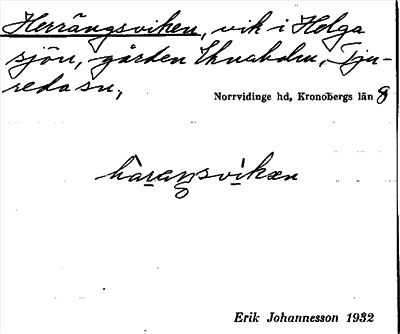 Herrängsviken, vik i Helga
sjön, gården Ehnaholm, Tju-
reda sn,
Norrvidinge hd, Kronobergs län g
hàraŋsvìkən
Erik Johannesson 1932